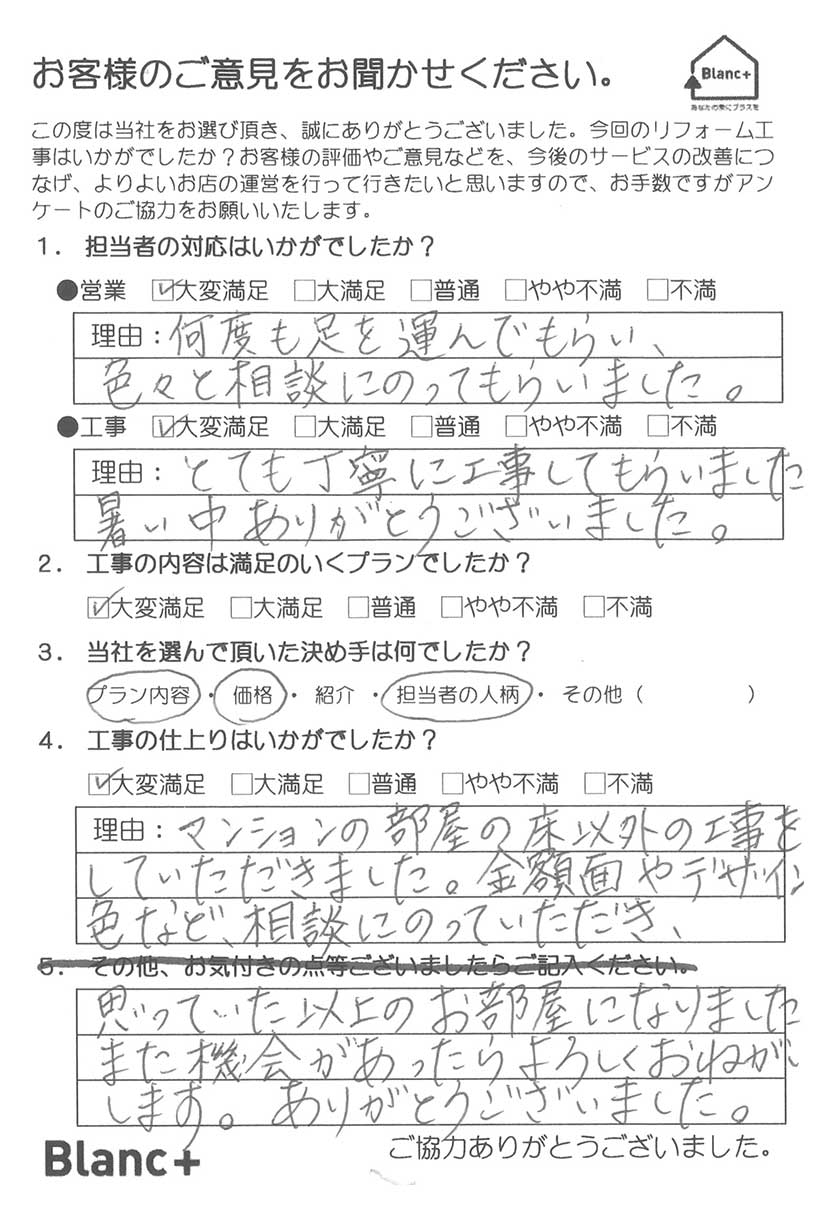 お客様のご意見をお聞かせください。
Blanc+
あなたの家にプラスを
この度は当社をお選び頂き、誠にありがとうございました。今回のリフォーム工
事はいかがでしたか？お客様の評価やご意見などを、今後のサービスの改善につ
なげ、よりよいお店の運営を行って行きたいと思いますので、お手数ですがアン
ケートのご協力をお願いいたします。
1． 担当者の対応はいかがでしたか？
●営業 ☑大変満足 □大満足 □普通 □やや不満 □不満
理由：何度も足を運んでもらい、
色々と相談にのってもらいました。
●工事 ☑大変満足 □大満足 □普通 □やや不満 □不満
理由：とても丁寧に工事してもらいました
暑い中ありがとうございました。
2． 工事の内容は満足のいくプランでしたか？
☑大変満足 □大満足 □普通 □やや不満 □不満
3． 当社を選んで頂いた決め手は何でしたか？
プラン内容・ 価格 ・ 紹介 ・ 担当者の人柄 ・ その他（ ）
4． 工事の仕上りはいかがでしたか？
☑大変満足 □大満足 □普通 □やや不満 □不満
理由：マンションの部屋の床以外の工事を
していただきました。金額面やデザイン
色など、相談にのっていただき、
5． その他、お気付きの点等ございましたらご記入ください。
思っていた以上のお部屋になりました
また機会があったらよろしくおねがい
します。ありがとうございました。
Blanc+
ご協力ありがとうございました。